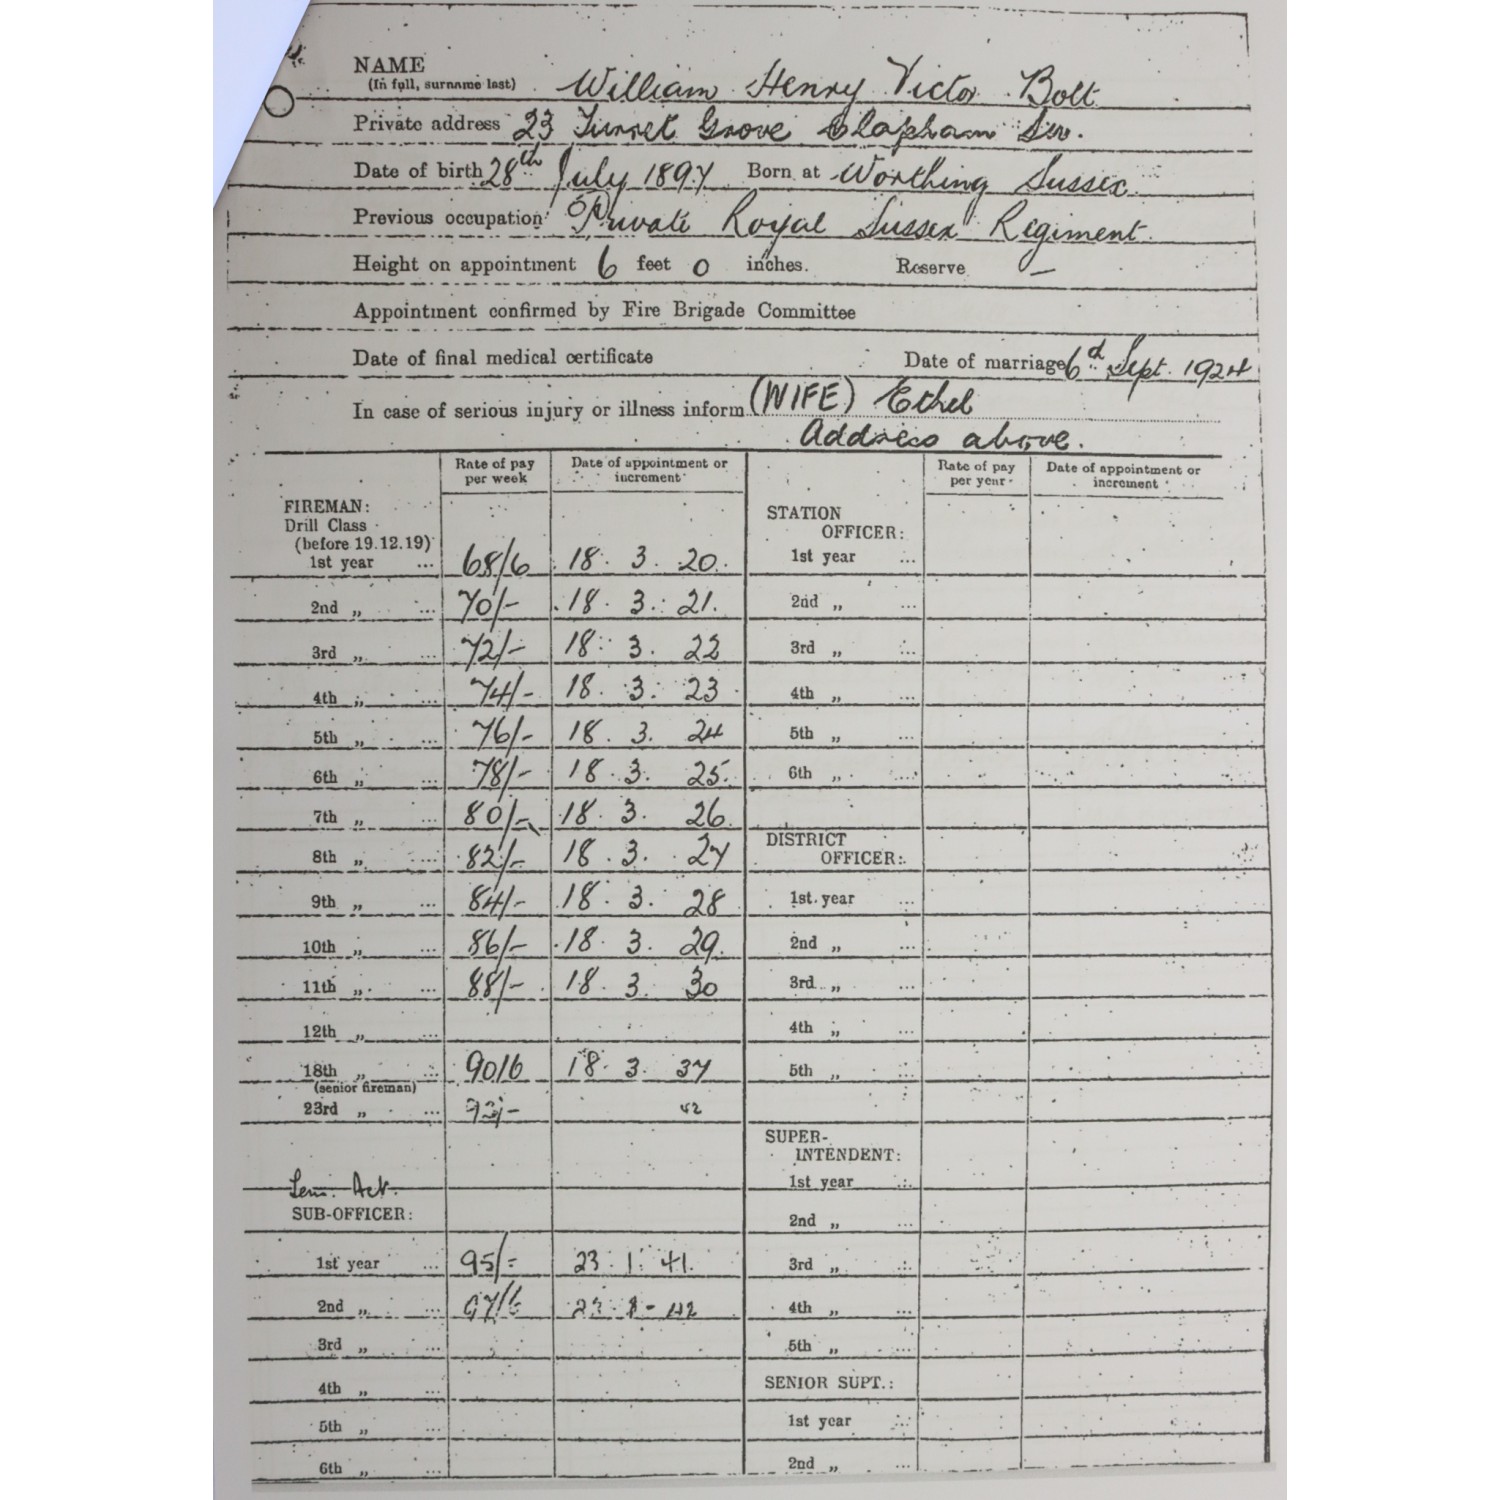 NAME
(In full, surname last) William Henry Victor Bolt
Private address 23 Turret Grove Clapham SW.
Date of birth 28th July 1897 Born at Worthing Sussex
Previous occupation Private Royal Sussex Regiment
Height on appointment 6 feet 0 inches. Reserve –
Appointment confirmed by Fire Brigade Committee
Date of final medical certificate Date of marriage 6d Sept. 1924
In case of serious injury or illness inform (WIFE) Ethel
Address above.
Rate of pay per week Date of appointment or increment
FIREMAN:
Drill Class
(before 19.12.19)
1st year ... 68/6 18. 3. 20.
2nd „ ... 70/- 18. 3. 21.
3rd „ ... 72/- 18. 3. 22
4th „ ... 74/- 18. 3. 23
5th „ ... 76/- 18. 3. 24
6th „ ... 78/- 18. 3. 25.
7th „ ... 80/- 18. 3. 26.
8th „ ... 82/- 18. 3. 27
9th „ ... 84/- 18. 3. 28
10th „ ... 86/- 18. 3. 29.
11th „ ... 88/- 18. 3. 30
12th „ ...
18th „ ... 90/6 18. 3. 37
(senior fireman)
23rd „ ... 42
SUB-OFFICER:
1st year ... 95/- 23. 1. 41.
2nd „ ... 97/6
3rd „
4th „ ...
5th „
6th „ ...
Rate of pay per year Date of appointment or increment
STATION
OFFICER:
1st year ...
2nd „ ...
3rd „ ...
4th „ ...
5th „ ...
6th „ ...
DISTRICT
OFFICER:
1st year ...
2nd „ ...
3rd „ ...
4th „ ...
5th „ ...
SUPER-
INTENDENT:
1st year ...
2nd „ ...
3rd „ ...
4th „ ...
5th „ ...
SENIOR SUPT.:
1st year ...
2nd „ ...